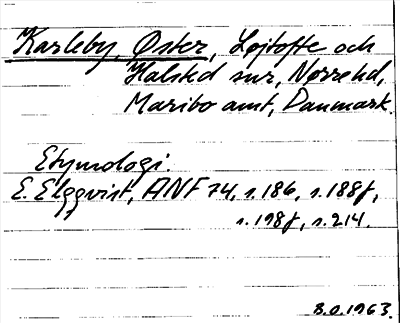 Karleby, Øster, Løjtofte och
Halsted snr, Nørrehd,
Maribo amt, Danmark.
Etymologi.
E. Elgqvist, ANF 74, s. 186, s. 188f,
s. 198f, s. 214.
B.O. 1963.